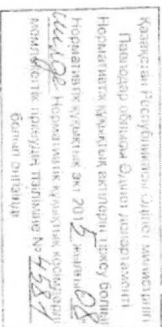 Қазақстан Республикасы Әділет министрлігі
Павлодар облысы Әділет департаменті
Нормативтік құқықтық актілерді тіркеу бөлімі
Нормативтік құқықтық акт 2015 жылғы 08
шілде Нормативтік құқықтық
мемлекеттік тіркеудің тізіліміне № 4581
болып енгізілді